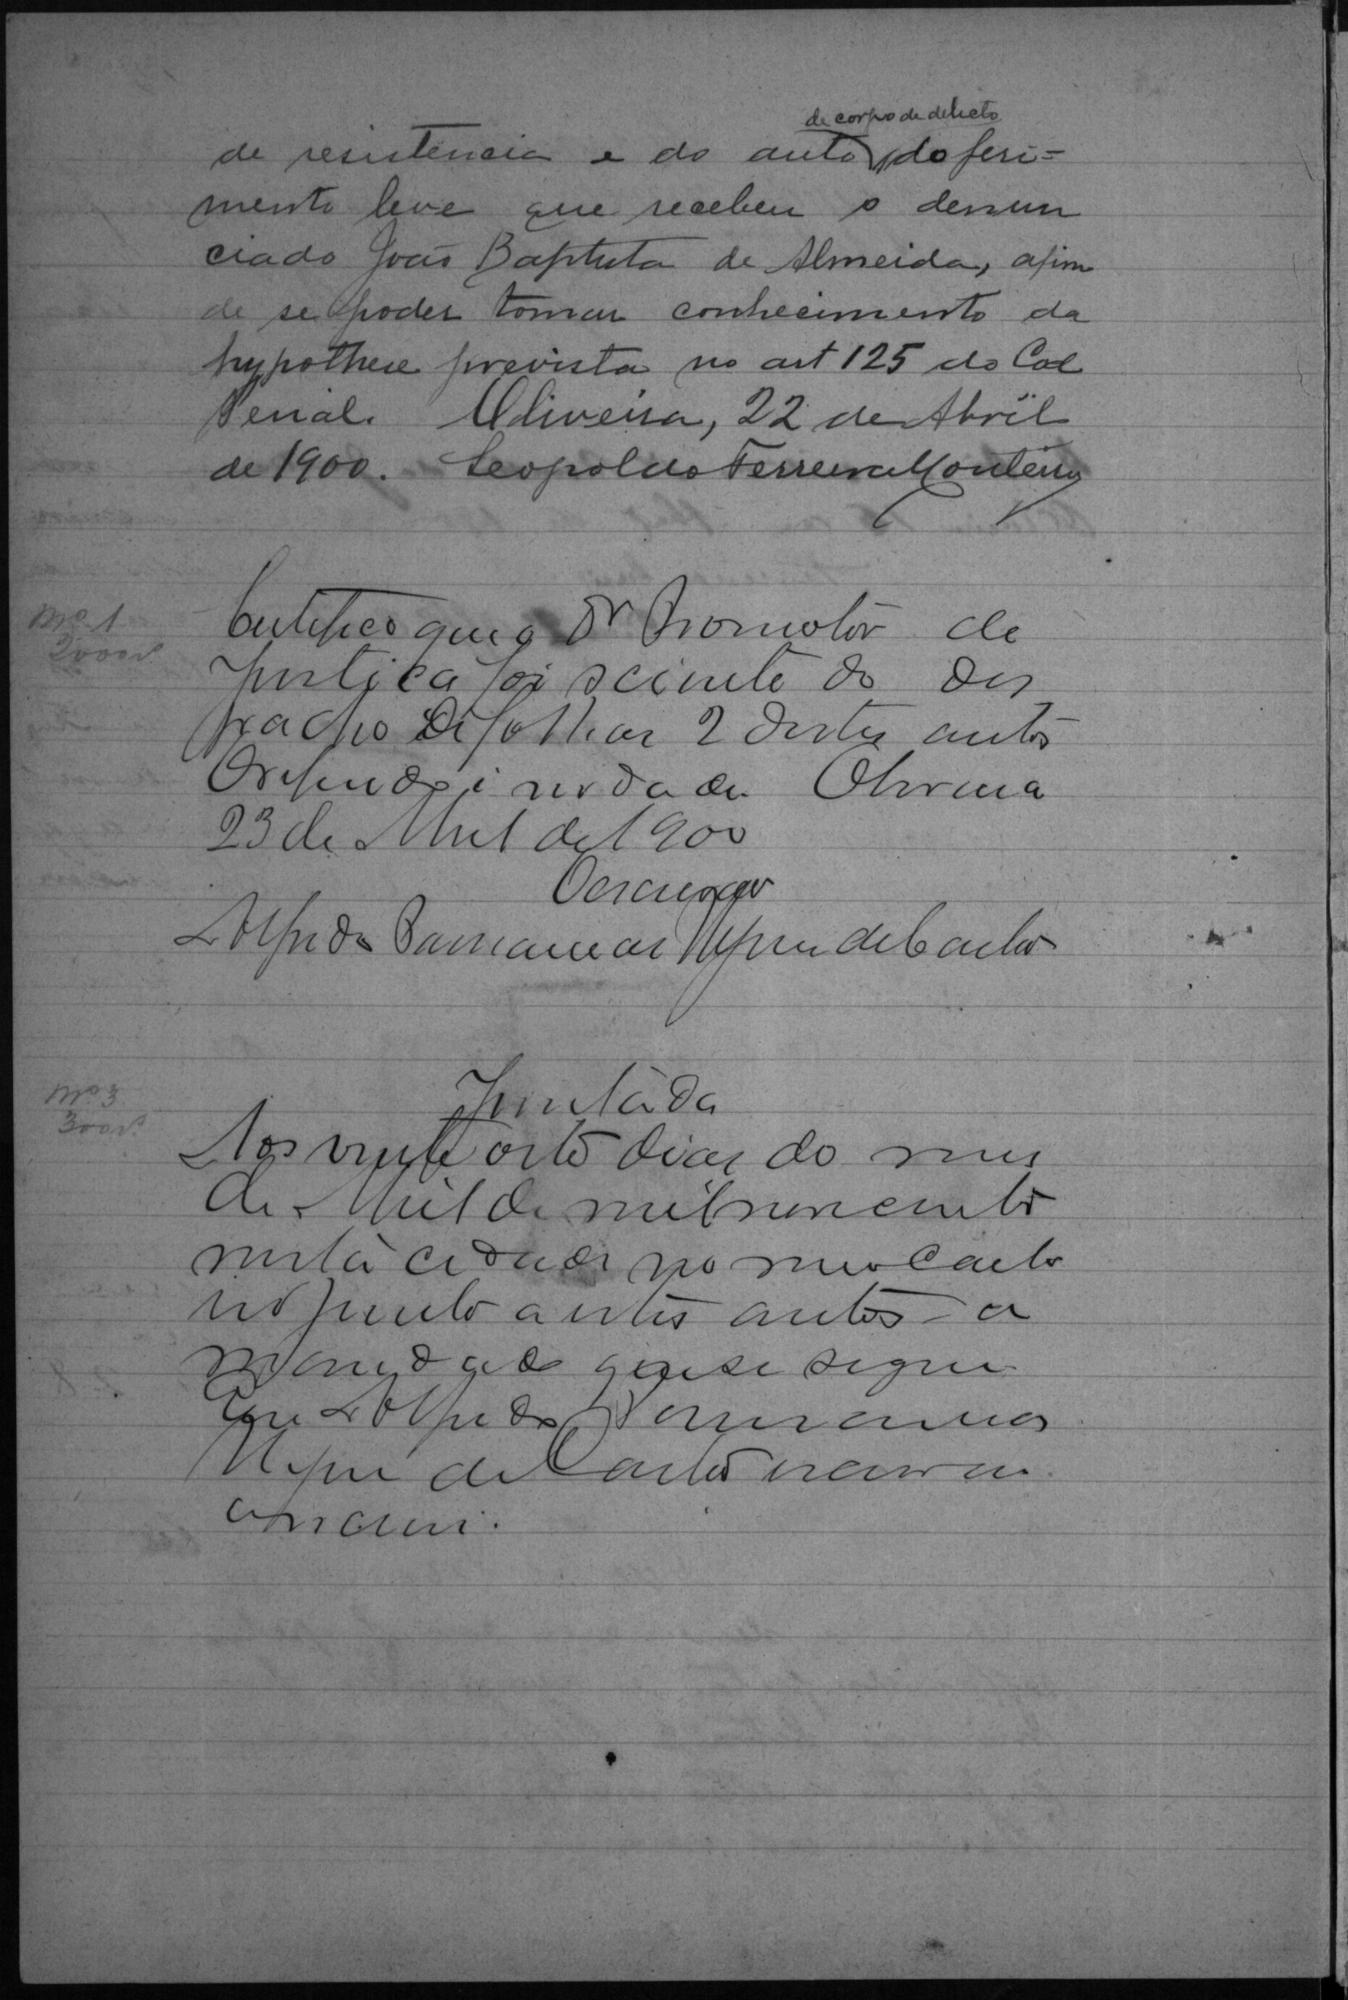 de corpo de delicto
de resistencia e do auto do feri=
mento leve que recebeu o denun
ciado João Baptista de Almeida, afim
de se poder tomar conhecimento da
hypothese prevista no art 125 do Cod
Penal. Oliveira, 22 de Abril
de 1900. Leopoldo Ferreira Monteiro
Certifico que o Dr Promotor de
Justiça foi sciente do des
pacho de folhas 2 destes autos
Oliveira
23 de Abril de 1900
O escrivão
Alfredo Parnamas Nepu de Castro
Nº 1
2000
Juntada
Nº 3
300
Aos vinte oito dias do mes
de Abril de mil novecentos
nesta cidade no meo Carto
rio junto a estes autos o
mandado que se segue
Eu Alfredo
Nepu de Castro escrivão
escrevi.